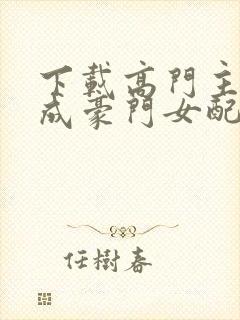 下載高門主
成豪門女配
任樹春